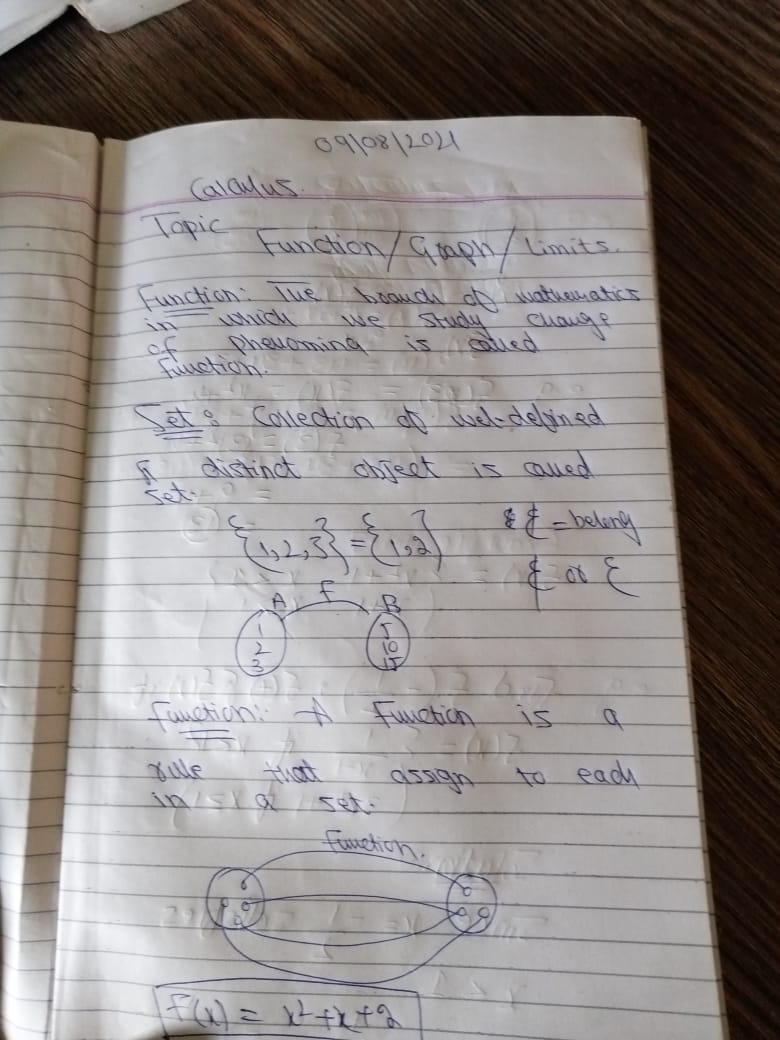 09/08/2021
Calculus.
Topic
Function/Graph/Limits.
Function: The branch of mathematics
in which we study change
of phenomina is called
function.
Set: Collection of wel-defined
& distinct object is called
set.
{1,2,3} = {1,2} = belong
or
A F B
1 5
2 10
3 15
Function:- A function is a
rule that assign to each
in a set.
function.
f(x) = x²+x+2